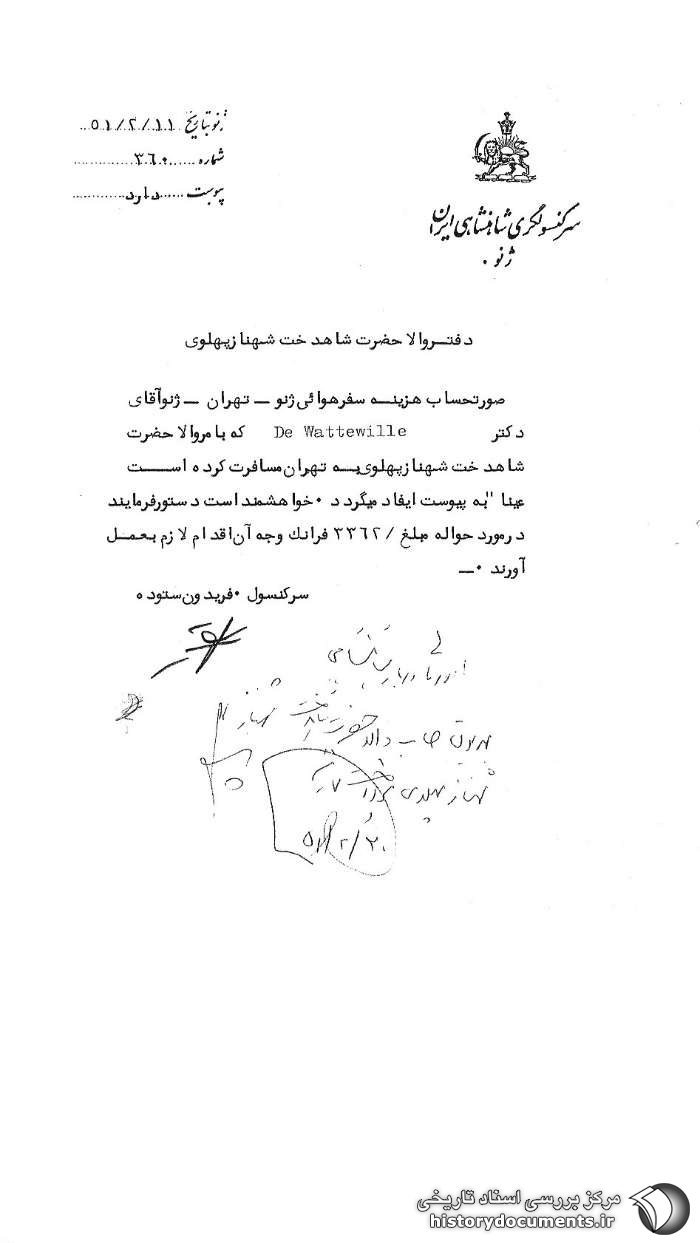 سرکنسولگری شاهنشاهی ایران
ژنو .
ژنو بتاریخ ۵۱/۲/۱۱
شماره ۳۶۰
پیوست دارد
دفتر والاحضرت شاهدخت شهناز پهلوی
صورتحساب هزینه سفر هوائی ژنو – تهران – ژنو آقای
دکتر De Wattewille که بامر والاحضرت
شاهدخت شهناز پهلوی به تهران مسافرت کرده است
عینا" به پیوست ایفاد میگردد . خواهشمند است دستور فرمایند
در مورد حواله مبلغ /۳۳۶۲ فرانک وجه آن اقدام لازم بعمل
آورند . –
سرکنسول . فریدون ستوده
شهناز پهلوی
۵۱/۲/۲۰
مرکز بررسی اسناد تاریخی
historydocuments.ir